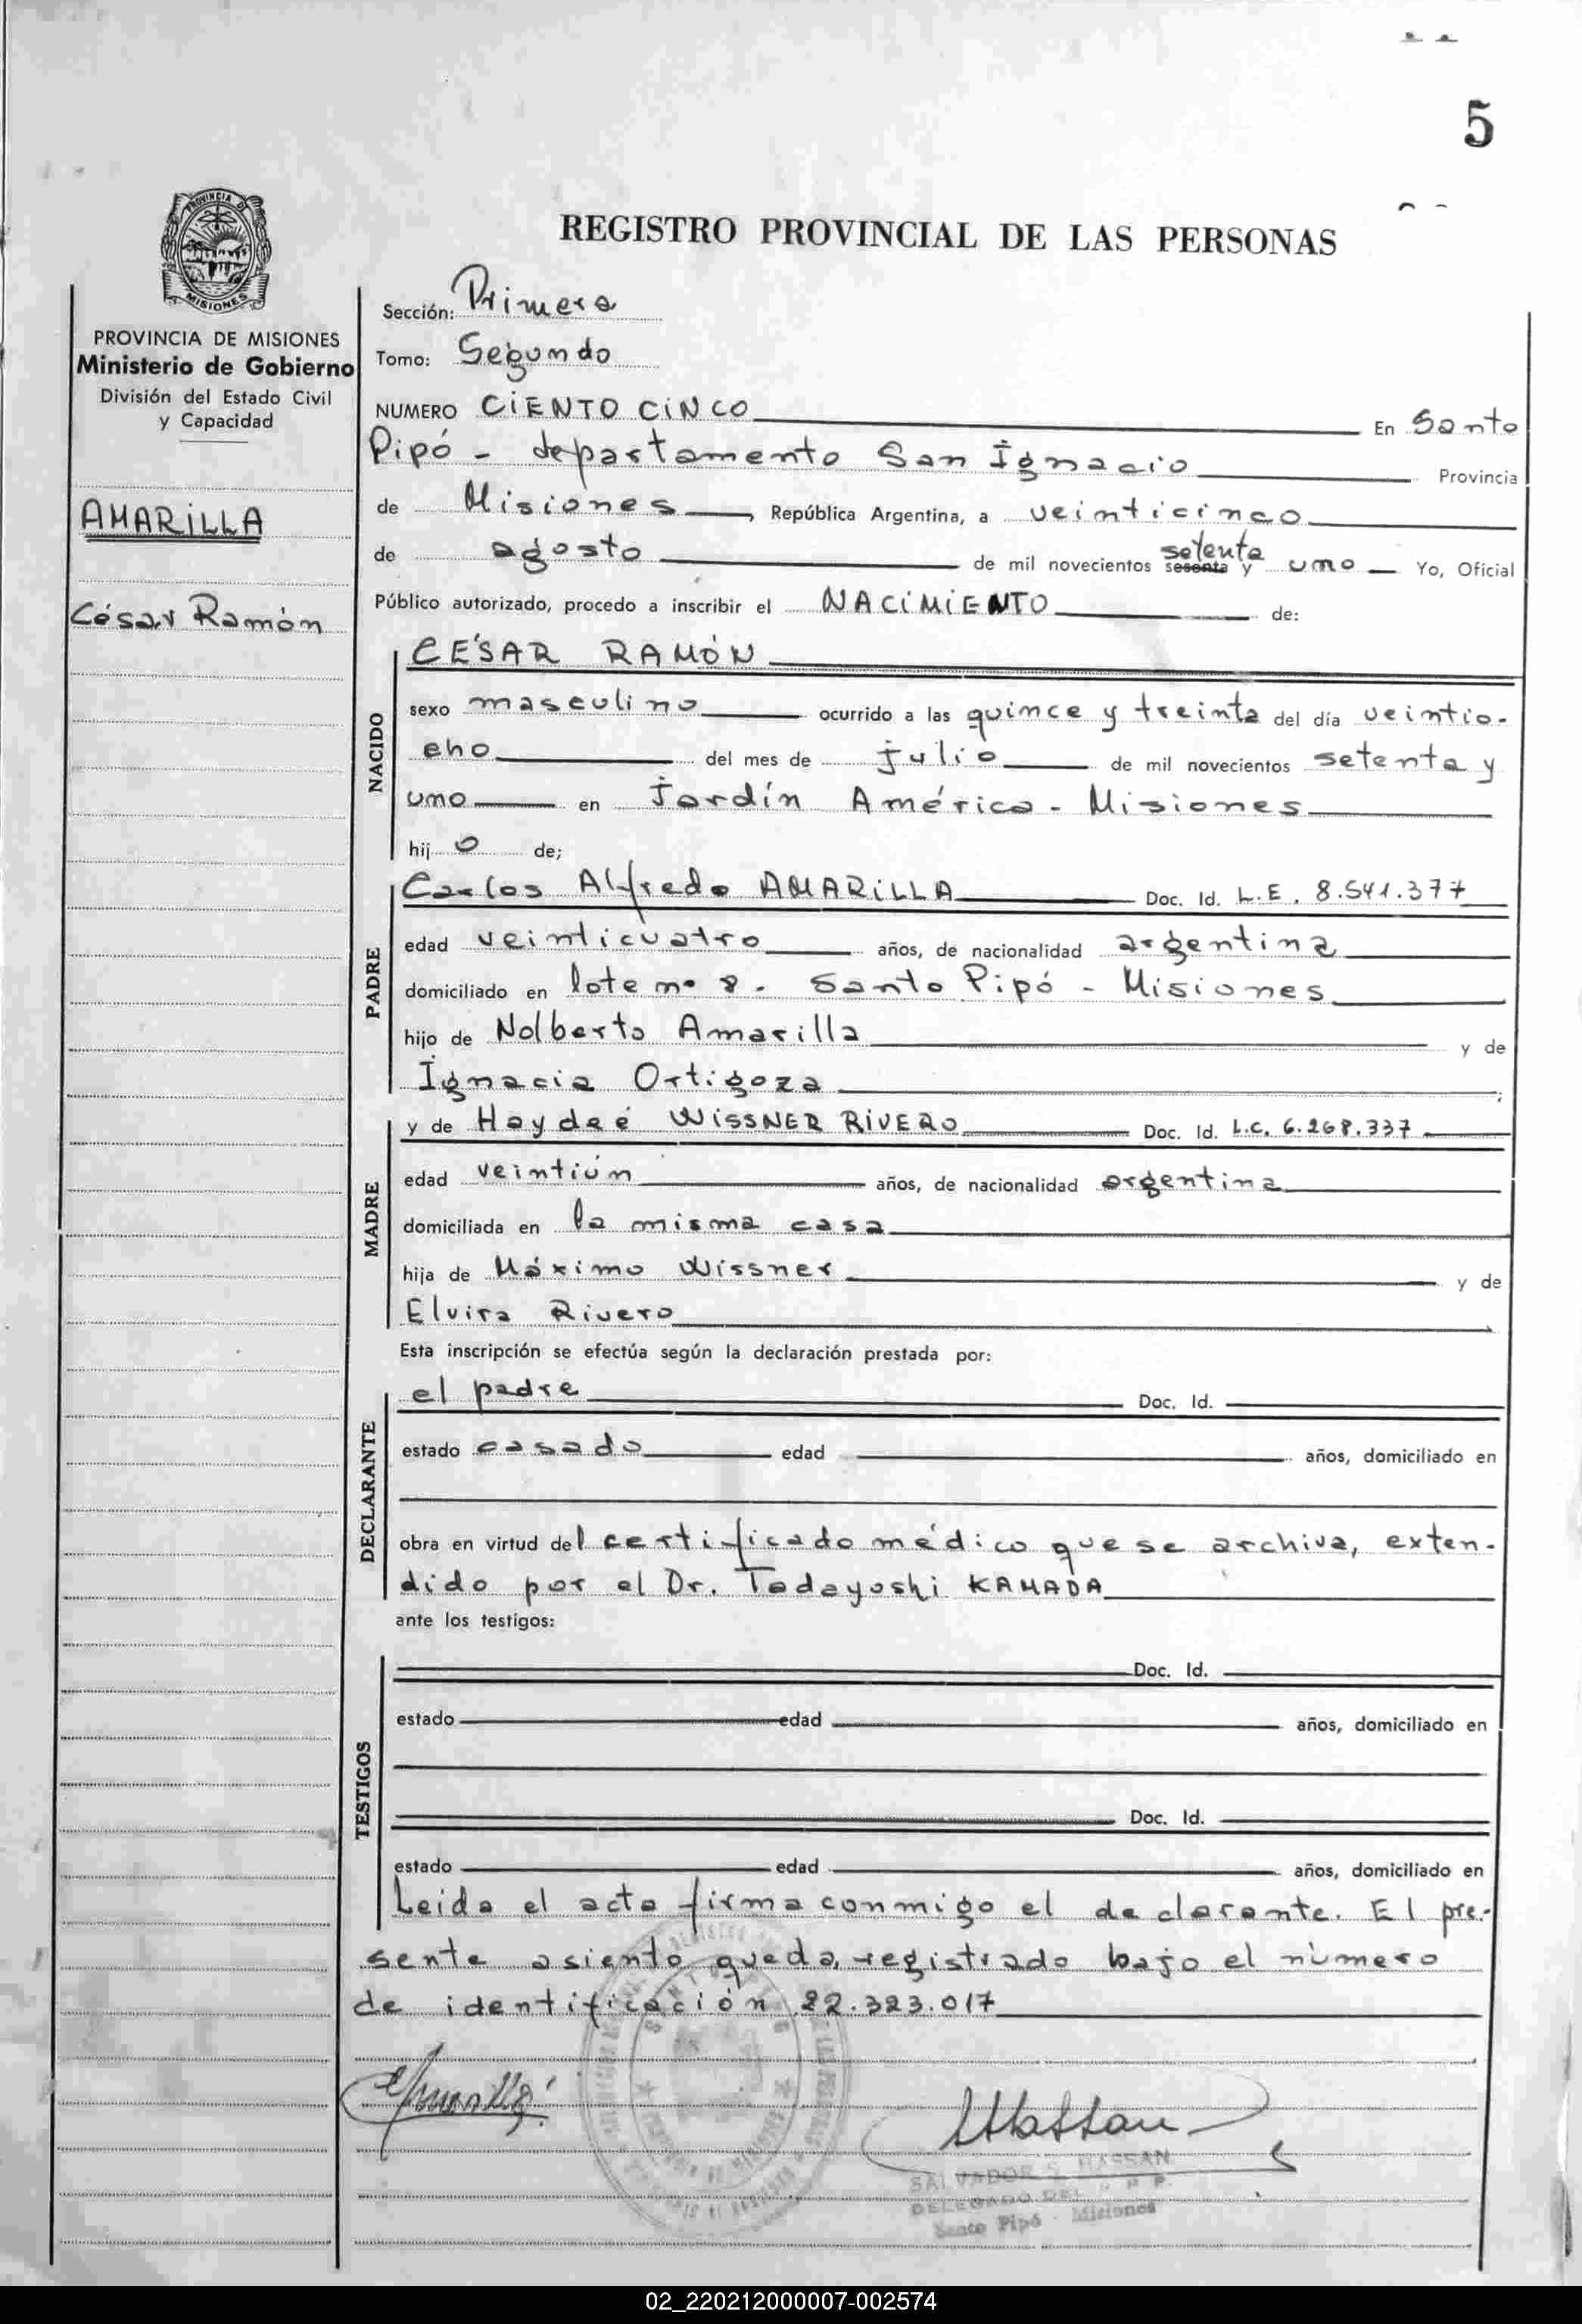 5
REGISTRO PROVINCIAL DE LAS PERSONAS
PROVINCIA DE
MISIONES
PROVINCIA DE MISIONES
Ministerio de Gobierno
División del Estado Civil
y Capacidad
AMARILLA
César Ramón
Sección: Primera
Tomo: Segundo
NUMERO CIENTO CINCO En Santo
Pipó - departamento San Ignacio Provincia
de Misiones, República Argentina, a veinticinco
de agosto de mil novecientos setenta sesenta y uno Yo, Oficial
Público autorizado, procedo a inscribir el NACIMIENTO de:
NACIDO
CÉSAR RAMÓN
sexo masculino ocurrido a las quince y treinta del día veintio-
cho del mes de julio de mil novecientos setenta y
uno en Jardín América - Misiones
hijo de;
PADRE
Carlos Alfredo AMARILLA Doc. Id. L.E. 8.541.377
edad veinticuatro años, de nacionalidad argentina
domiciliado en lote nº 8 - Santo Pipó - Misiones
hijo de Nolberto Amarilla y de
Ignacia Ortigoza;
MADRE
y de Haydeé WISSNER RIVERO Doc. Id. L.C. 6.268.337
edad veintiún años, de nacionalidad argentina
domiciliada en la misma casa
hija de Máximo Wissner y de
Elvira Rivero
Esta inscripción se efectúa según la declaración prestada por:
DECLARANTE
el padre Doc. Id.
estado casado edad años, domiciliado en
obra en virtud del certificado médico que se archiva, exten-
dido por el Dr. Tadayoshi KAMADA
ante los testigos:
TESTIGOS
Doc. Id.
estado edad años, domiciliado en
Doc. Id.
estado edad años, domiciliado en
Leida el acta firma conmigo el declarante. El pre-
sente asiento queda registrado bajo el número
de identificación 22.323.017
Amarilla
Hassan
SALVADOR S. HASSAN
DELEGADO DEL R P P.
Santo Pipó - Misiones
02_220212000007-002574